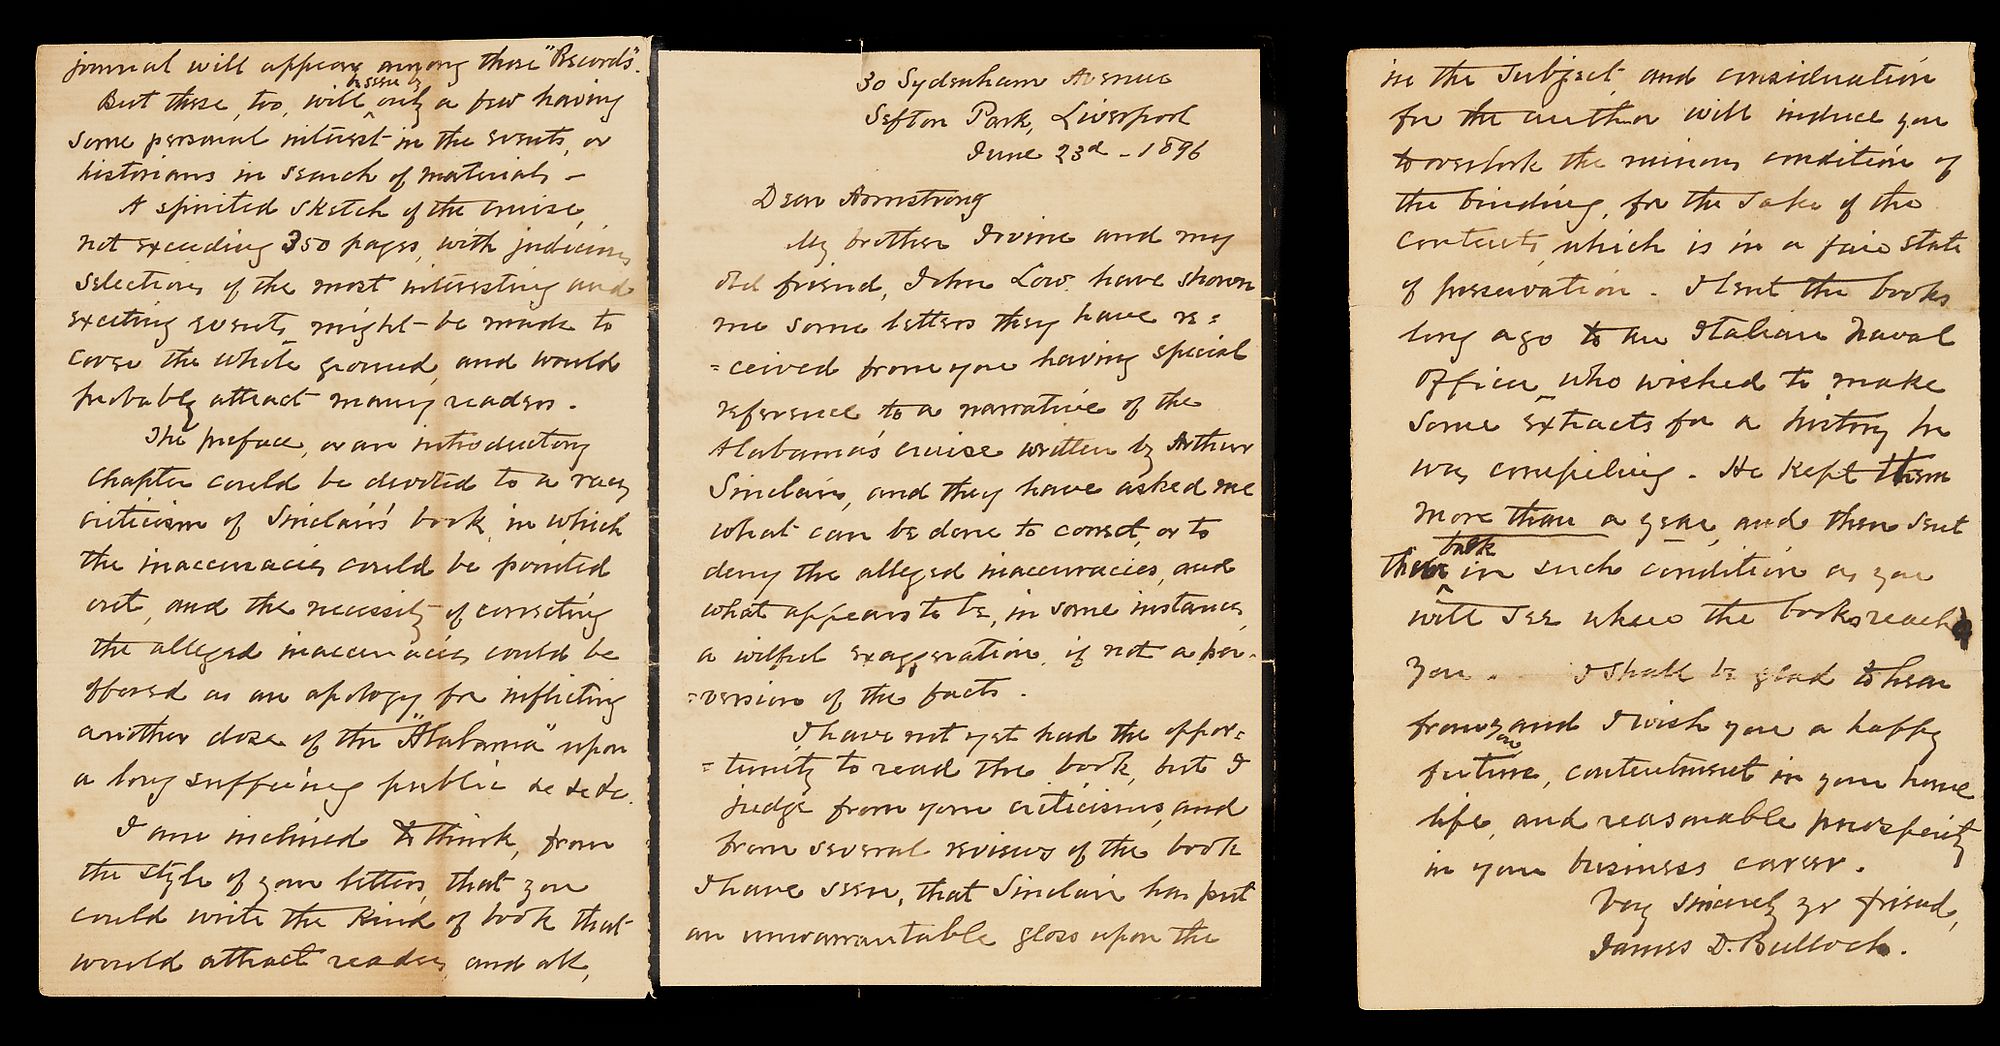 30 Sydenham Avenue
Sefton Park, Liverpool
June 23d - 1896
Dear Armstrong
My brother Irvine and my
old friend, John Low have shown
me some letters they have re=
=ceived from you having special
reference to a narrative of the
Alabama's cruise written by Arthur
Sinclair, and they have asked me
what can be done to correct, or to
deny the alleged inaccuracies, and
what appears to be, in some instances,
a wilful exaggeration, if not a per-
=version of the facts.
I have not yet had the oppor=
=tunity to read the book, but I
judge from your criticisms, and
from several reviews of the book
I have seen, that Sinclair has put
an unwarrantable gloss upon the
journal will appear among those "Records".
But these, too, will only a few having
some personal interest in the events, or
historians in search of materials -
A spirited sketch of the cruise,
not exceeding 350 pages, with judicious
selections of the most interesting and
exciting events might be made to
cover the whole ground, and would
probably attract many readers.
The preface, or an introductory
chapter could be devoted to a racy
criticism of Sinclair's book, in which
the inaccuracies could be pointed
out, and the necessity of correcting
the alleged inaccuracies could be
offered as an apology for inflicting
another dose of the "Alabama" upon
a long suffering public &c &c &c.
I am inclined to think, from
the style of your letters, that you
could write the kind of book that
would attract readers, and all,
in the subject, and consideration
for the author will induce you
to overlook the ruinous condition of
the binding, for the sake of the
contents, which is in a fair state
of preservation. I lent the books
long ago to an Italian Naval
Officer, who wished to make
some extracts for a history he
was compiling. He kept them
more than a year, and then sent
back
them in such condition as you
will see when the books reach
you. I shall be glad to hear
from you and I wish you a happy
future, contentment in your home
life, and reasonable prosperity
in your business career.
Very sincerely yr friend,
James D. Bulloch.